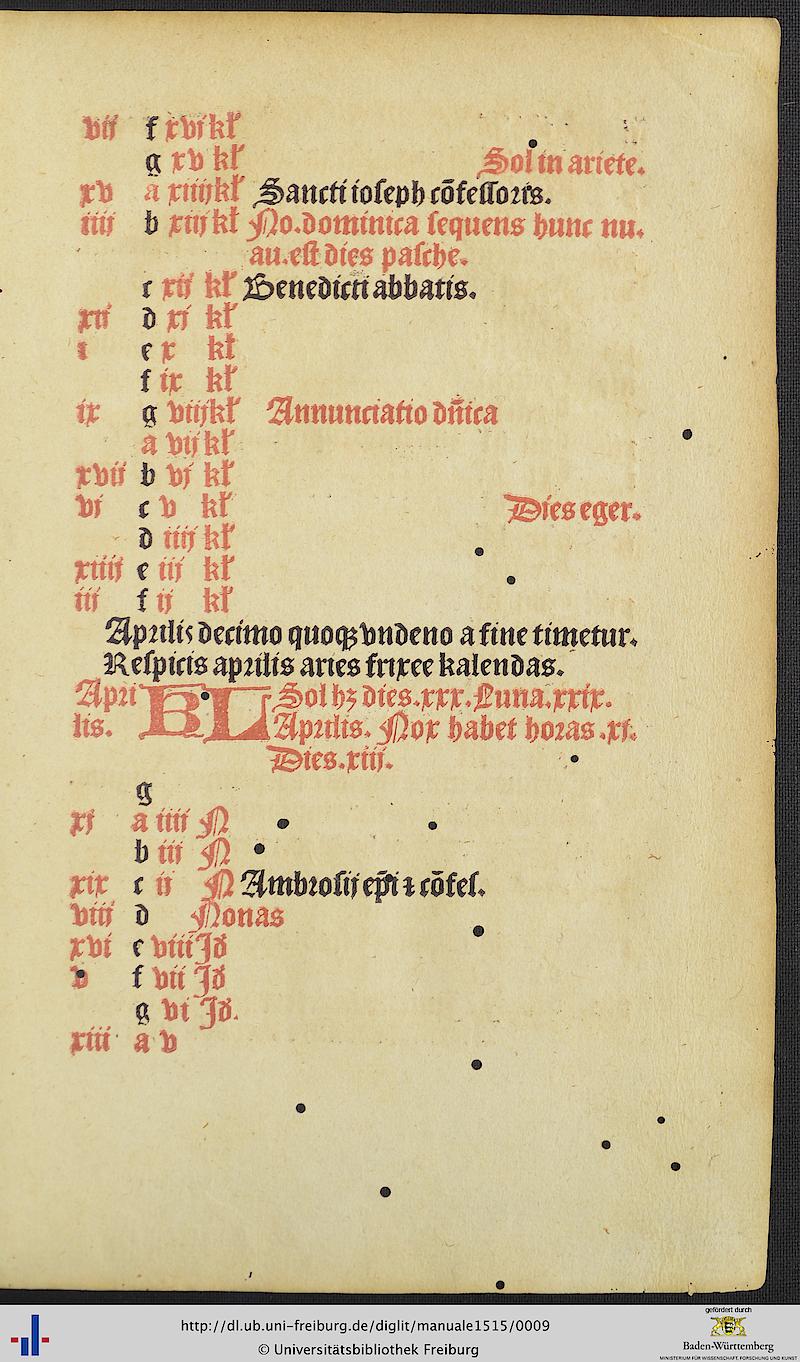 vij f xvj kł
g xv kł Sol in ariete.
xv a xiiij kł Sancti ioseph cōfessoris.
iiij b xiij kł No. dominica sequens hunc nu.
au. est dies pasche.
c xij kł Benedicti abbatis.
xij d xj kł
i e x kł
f ix kł
ix g viij kł Annunciatio dn̄ica
a vij kł
xvij b vj kł
vj c v kł Dies eger.
d iiij kł
xiiij e iij kł
iij f ij kł
Aprilis decimo quoqꝫ vndeno a fine timetur.
Respicis aprilis aries frixee kalendas.
Apri KL Sol hꝫ dies.xxx. Luna.xxix.
lis. Aprilis. Nox habet horas .xj.
Dies.xiij.
g
xj a iiij N
b iij N
xix c ij N Ambrosij ep̄i ⁊ cōfes.
viij d Nonas
xvi e viii Id
v f vii Id
g vi Id.
xiii a v
http://dl.ub.uni-freiburg.de/diglit/manuale1515/0009
© Universitätsbibliothek Freiburg
gefördert durch
Baden-Württemberg
MINISTERIUM FÜR WISSENSCHAFT, FORSCHUNG UND KUNST